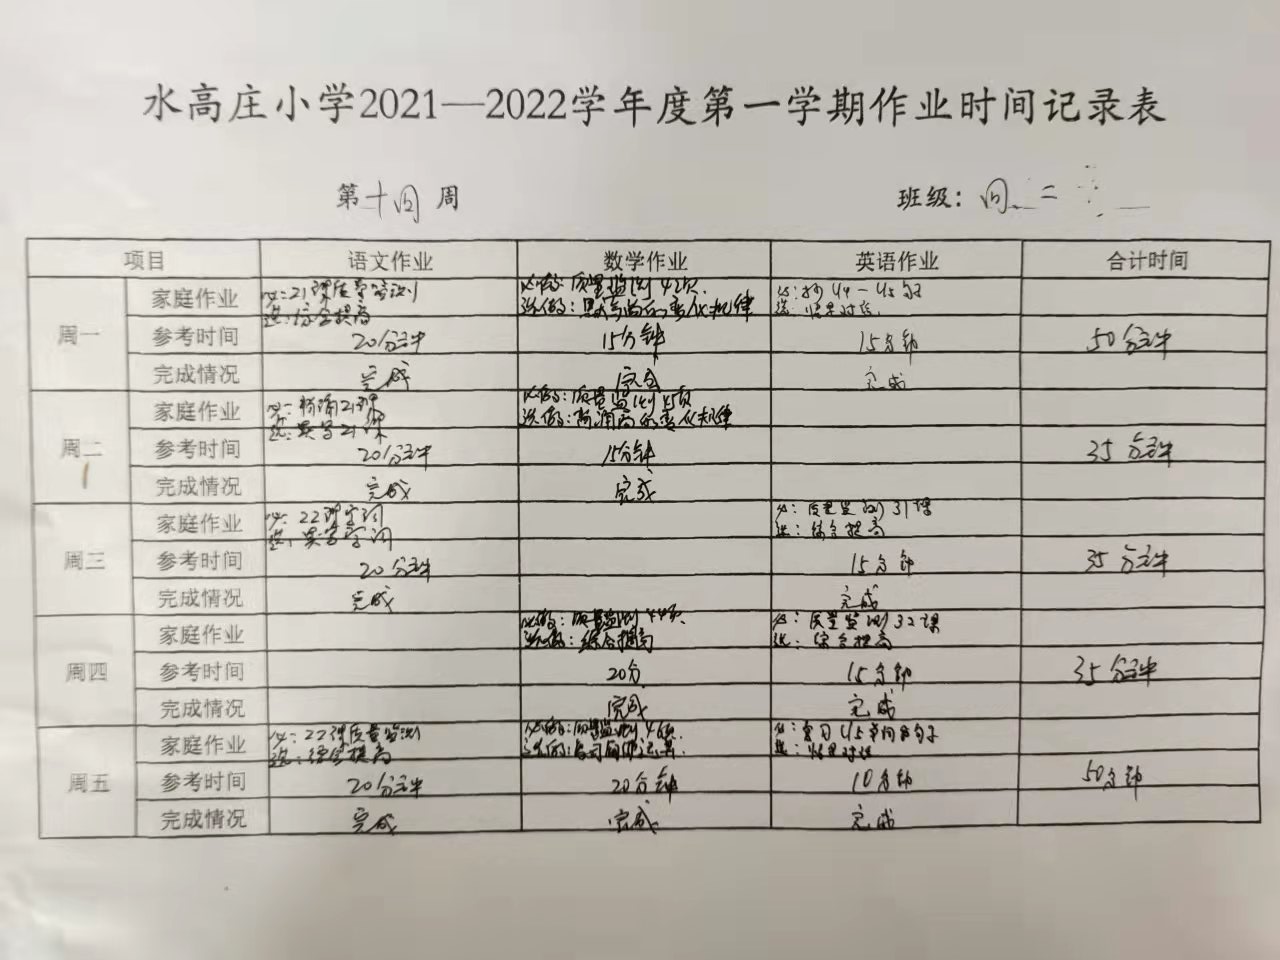 水高庄小学2021—2022学年度第一学期作业时间记录表
第十四周 班级：四.二
项目 语文作业 数学作业 英语作业 合计时间
周一
家庭作业 必：21课质量监测 必做：质量监测42页. 必：抄U4-U5句子
选：综合提高 选做：默写商的变化规律 选：情景对话.
参考时间 20分钟 15分钟 15分钟 50分钟
完成情况 完成 完成 完成
周二
家庭作业 必：朗诵21课 必做：质量监测45页
选：默写21课 选做：商的变化规律
参考时间 20分钟 15分钟 35分钟
完成情况 完成 完成
周三
家庭作业 必：22课字词 必：质量监测31课
选：默写字词 选：综合提高
参考时间 20分钟 15分钟 35分钟
完成情况 完成 完成
周四
家庭作业 必做：质量监测44页. 必：质量监测32课
选做：综合提高 选：综合提高
参考时间 20分 15分钟 35分钟
完成情况 完成 完成
周五
家庭作业 必：22课质量监测 必做：质量监测 必：复习U5单词和句子
选：综合提高 选做： 选：情景对话
参考时间 20分钟 20分钟 10分钟 50分钟
完成情况 完成 完成 完成